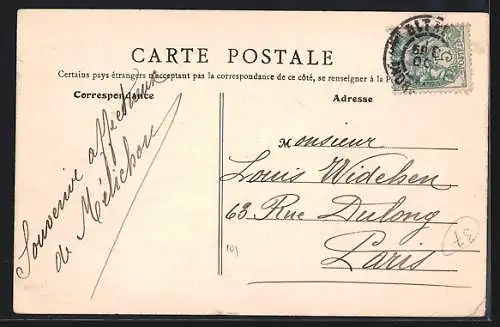 CARTE POSTALE
Certains pays étrangers n'acceptant pas la correspondance de ce côté, se renseigner à la
Correspondance
Adresse
Souvenir affectueux
de Mélichou
Monsieur
Louis Widehen
63 Rue Dulong
Paris
37